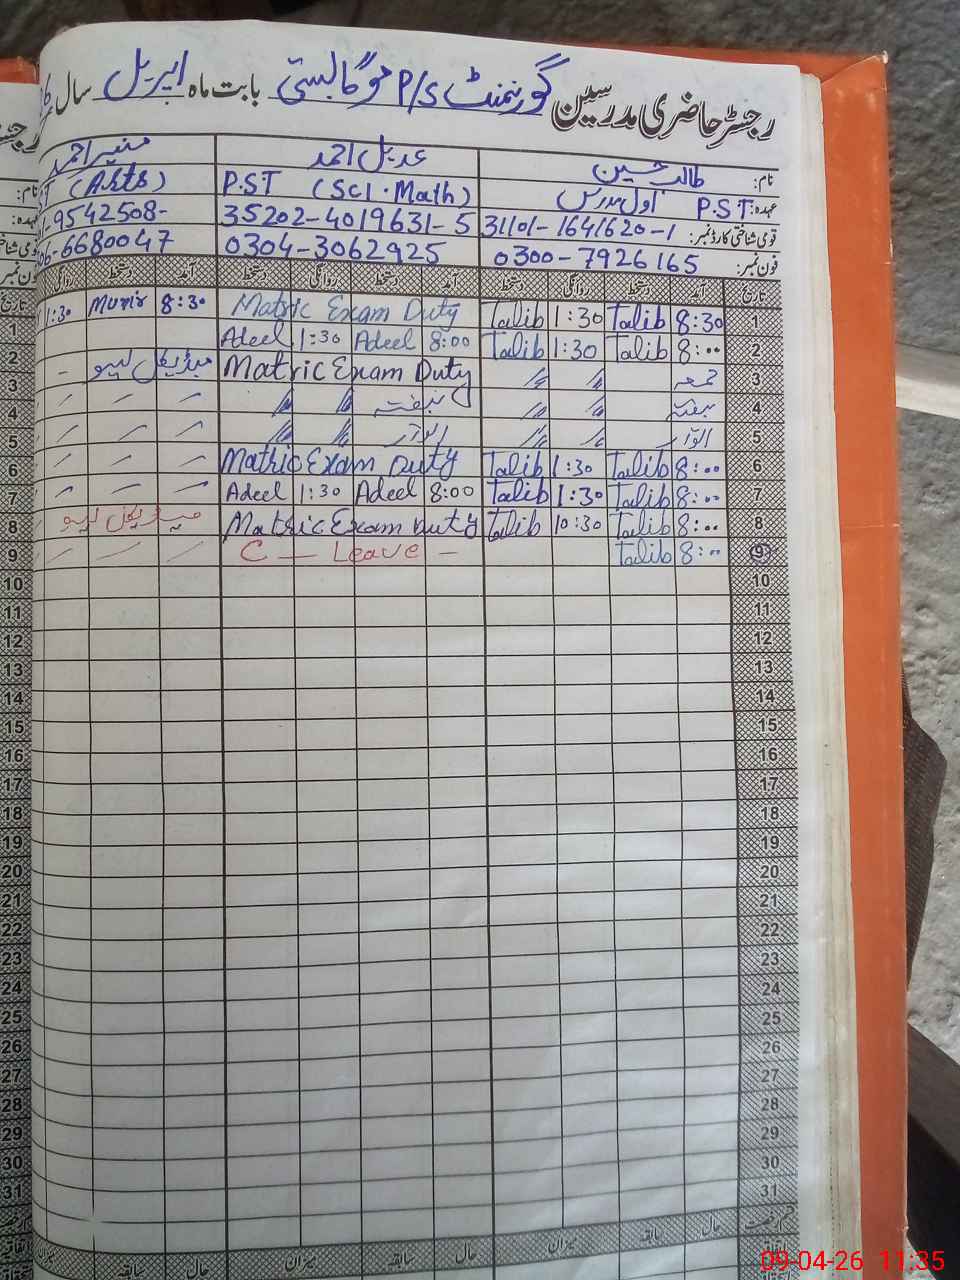 رجسٹر حاضری مدرسین گورنمنٹ P/S موگا بستی بابت ماہ اپریل سال
نام: طالب حسین عدیل احمد منیر احمد
عہدہ: P.S.T اول مدرس P.ST (Sci. Math) (Arts)
قومی شناختی کارڈ نمبر: 31101-1641620-1 35202-4019631-5 -9542508-
فون نمبر: 0300-7926165 0304-3062925 -6680047
تاریخ آمد دستخط روانگی دستخط آمد دستخط روانگی دستخط آمد دستخط روانگی
1 8:30 Talib 1:30 Talib Matric Exam Duty 8:30 Munir 1:30
2 8:00 Talib 1:30 Talib 8:00 Adeel 1:30 Adeel
3 جمعہ Matric Exam Duty میڈیکل لیو
4 ہفتہ ہفتہ
5 اتوار اتوار
6 8:00 Talib 1:30 Talib Matric Exam Duty
7 8:00 Talib 1:30 Talib 8:00 Adeel 1:30 Adeel
8 8:00 Talib 10:30 Talib Matric Exam Duty میڈیکل لیو
9 8:00 Talib C — Leave —
10
11
12
13
14
15
16
17
18
19
20
21
22
23
24
25
26
27
28
29
30
31
حال سابقہ میزان حال سابقہ میزان حال سابقہ میزان
09-04-26 11:35